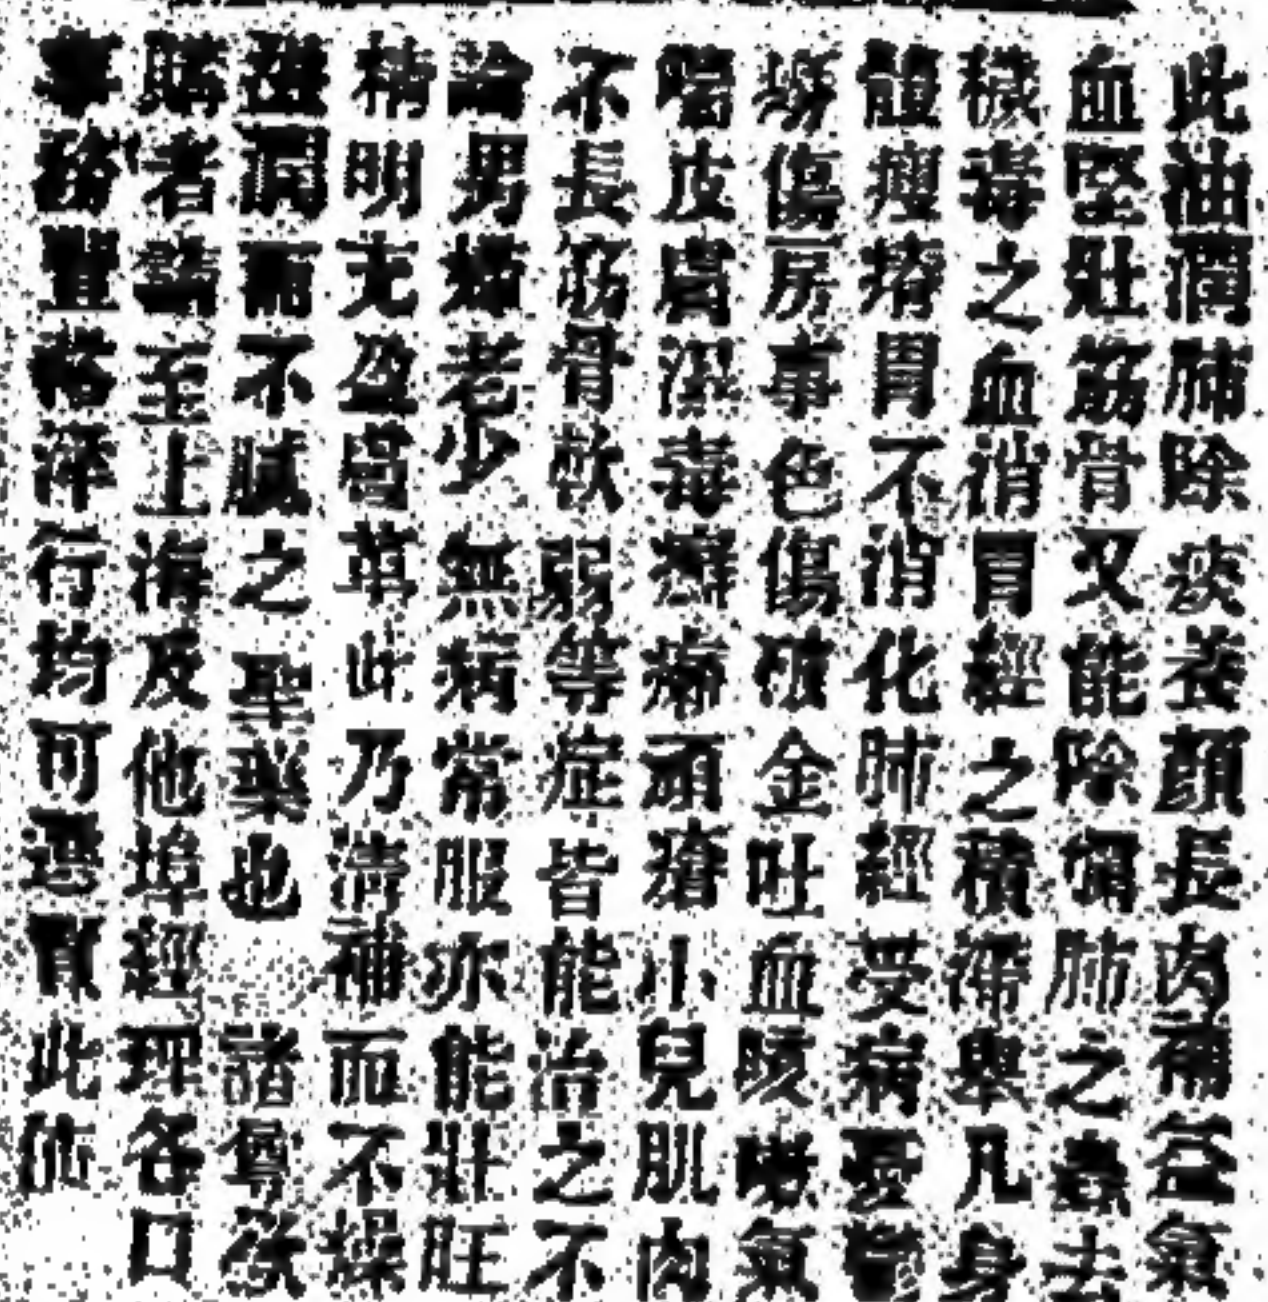 此油潤肺除痰養顏長肉補益氣
血堅壯筋骨又能除痾肺之蟲去
穢毒之血消胃經之積滯舉凡身
體瘦瘠胃不消化肺經受病憂鬱
勞傷房事色傷破金吐血咳嗽氣
喘皮膚濕毒癬癩頑瘡小兒肌肉
不長筋骨軟弱等症皆能治之不
論男婦老少無病常服亦能壯旺
精明充盈營英此乃清補而不燥
滋潤而不膩之聖藥也 諸尊欲
購者請至上海及他埠經理各口
事務豐裕洋行均可邊買此佈